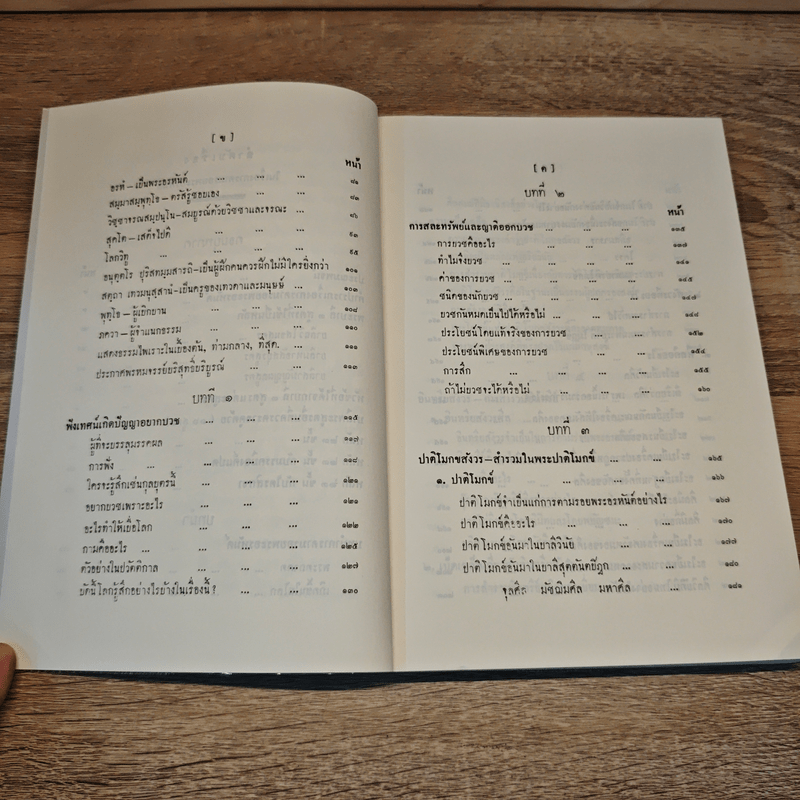 [ ข ]
หน้า
อรหํ—เป็นพระอรหันต์ ... ... ๘๑
สมฺมาสมฺพุทฺโธ—ตรัสรู้ชอบเอง ... ... ๘๓
วิชฺชาจรณสมฺปนฺโน—สมบูรณ์ด้วยวิชชาและจรณะ ... ๘๖
สุคโต—เสด็จไปดี ... ... ... ๙๓
โลกวิทู ... ... ... ๙๕
อนุตฺตโร ปุริสทมฺมสารถิ—เป็นผู้ฝึกคนควรฝึกไม่มีใครยิ่งกว่า ๑๐๑
สตฺถา เทวมนุสฺสานํ—เป็นครูของเทวดาและมนุษย์ ... ๑๐๓
พุทฺโธ—ผู้เบิกบาน ... ... ... ๑๐๘
ภควา—ผู้จำแนกธรรม ... ... ... ๑๑๐
แสดงธรรมไพเราะในเบื้องต้น, ท่ามกลาง, ที่สุด. ... ๑๑๑
ประกาศพรหมจรรย์บริสุทธิ์บริบูรณ์ ... ... ๑๑๓
บทที่ ๑
ฟังเทศน์เกิดปัญญาอยากบวช ... ... ... ๑๑๕
ผู้ที่จะบรรลุมรรคผล ... ... ... ๑๑๗
การฟัง ... ... ... ... ๑๑๘
ใครจะรู้สึกเช่นกุลบุตรนี้ ... ... ... ๑๒๑
อยากบวชเพราะอะไร ... ... ... ๑๒๑
อะไรทำให้เบื่อโลก ... ... ... ๑๒๒
กามคืออะไร ... ... ... ... ๑๒๕
ตัวอย่างในปวัตติกาล ... ... ... ๑๒๗
บัดนี้โลกรู้สึกอย่างไรบ้างในเรื่องนี้? ... ... ๑๓๐
[ ค ]
บทที่ ๒
หน้า
การสละทรัพย์และญาติออกบวช ... ... ... ๑๓๕
การบวชคืออะไร ... ... ... ๑๓๗
ทำไมจึงบวช ... ... ... ๑๔๑
ค่าของการบวช ... ... ... ๑๔๕
ชนิดของนักบวช ... ... ... ๑๔๗
บวชกันหมดเป็นไปได้หรือไม่ ... ... ๑๔๘
ประโยชน์โดยแท้จริงของการบวช ... ... ๑๕๒
ประโยชน์พิเศษของการบวช ... ... ๑๕๔
การสึก ... ... ... ... ๑๕๕
ถ้าไม่บวชจะได้หรือไม่ ... ... ... ๑๖๐
บทที่ ๓
ปาติโมกขสังวร—สำรวมในพระปาติโมกข์ ... ... ๑๖๕
๑. ปาติโมกข์ ... ... ... ๑๖๖
ปาติโมกข์จำเป็นแก่การตามรอยพระอรหันต์อย่างไร ๑๖๗
ปาติโมกข์คืออะไร ... ... ... ๑๗๐
ปาติโมกข์อันมาในบาลีวินัย ... ... ๑๗๗
ปาติโมกข์อันมาในบาลีสุตตันตปิฎก ... ... ๑๘๐
จุลศีล มัชฌิมศีล มหาศีล ... ๑๘๑